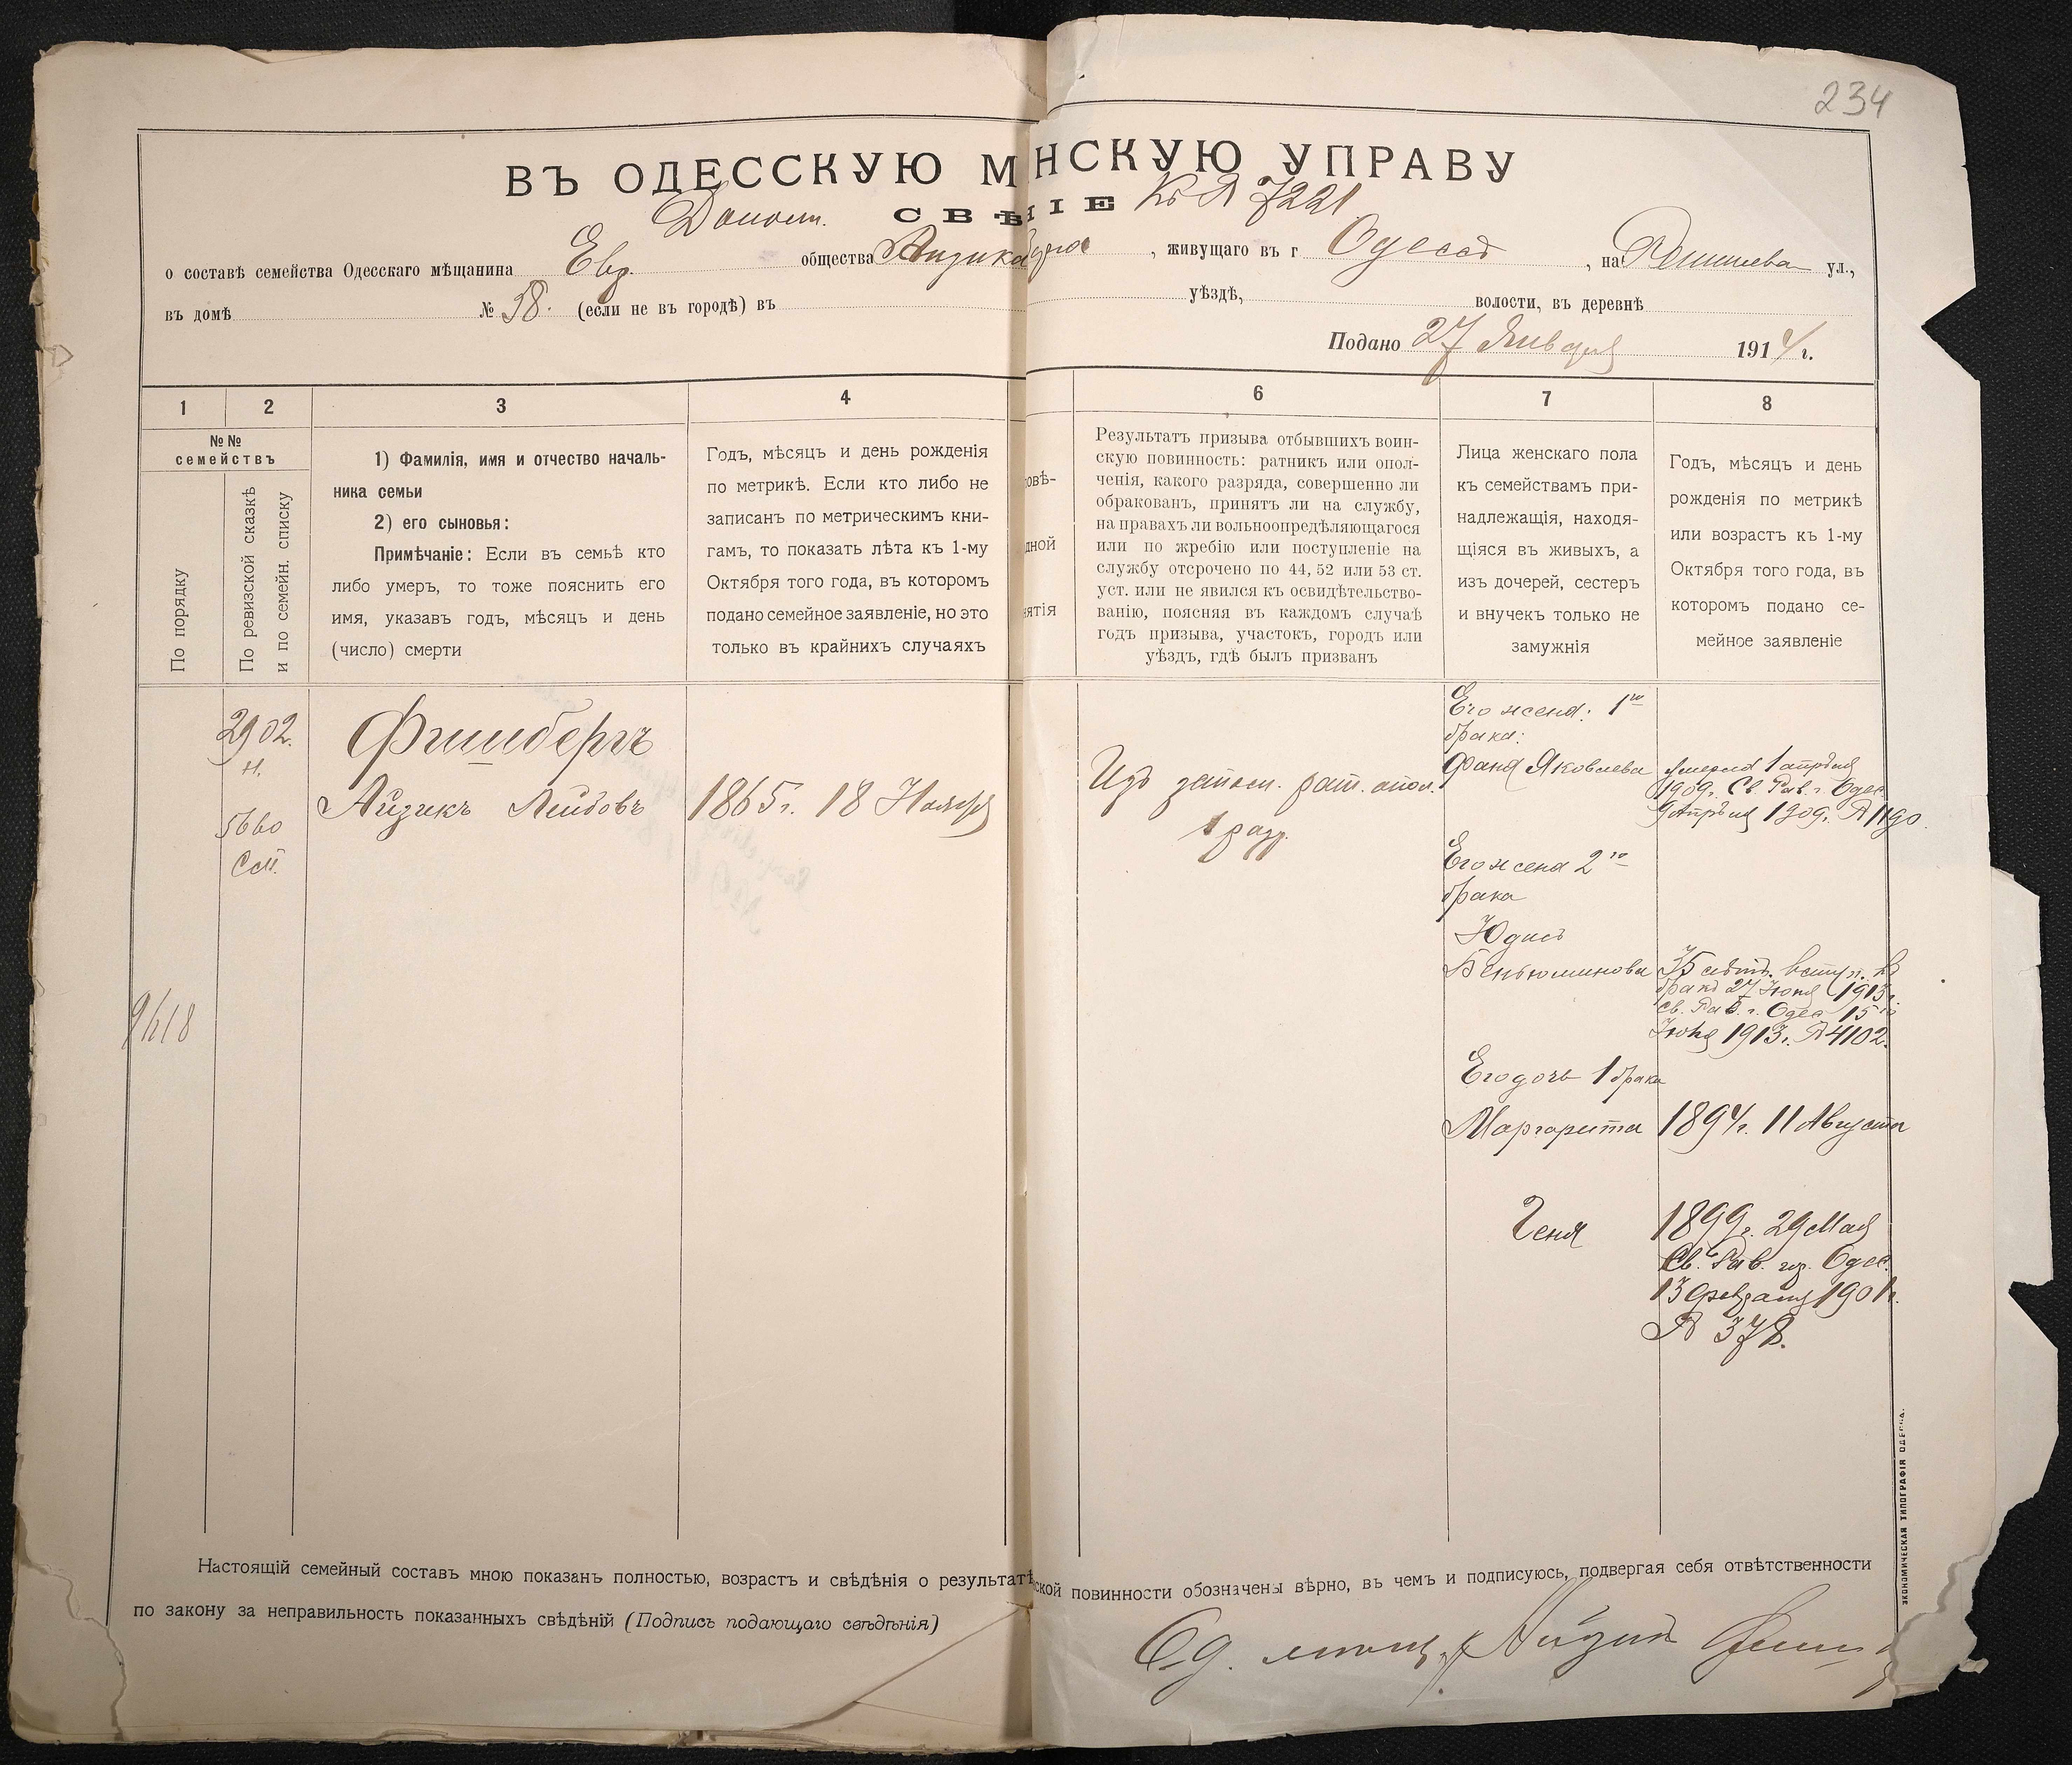 234
ВЪ ОДЕССКУЮ М НСКУЮ УПРАВУ
Дополн. СВѢ НІЕ Къ № 7221
о составѣ семейства Одесскаго мѣщанина Евр. общества , живущаго въ г Одессѣ , на ул.,
въ домѣ № 58. (если не въ городѣ) въ уѣздѣ, волости, въ деревнѣ
Подано 27 Января 1914 г.
1 2 3 4 6 7 8
№№ семействъ
По порядку
По ревизской сказкѣ и по семейн. списку
1) Фамилія, имя и отчество началь-
ника семьи
2) его сыновья:
Примѣчаніе: Если въ семьѣ кто
либо умеръ, то тоже пояснить его
имя, указавъ годъ, мѣсяцъ и день
(число) смерти
Годъ, мѣсяцъ и день рожденія
по метрикѣ. Если кто либо не
записанъ по метрическимъ кни-
гамъ, то показать лѣта къ 1-му
Октября того года, въ которомъ
подано семейное заявленіе, но это
только въ крайнихъ случаяхъ
овѣ-
дной
нятія
Результатъ призыва отбывшихъ воин-
скую повинность: ратникъ или опол-
ченія, какого разряда, совершенно ли
обракованъ, принятъ ли на службу,
на правахъ ли вольноопредѣляющагося
или по жребію или поступленіе на
службу отсрочено по 44, 52 или 53 ст.
уст. или не явился къ освидѣтельство-
ванію, поясняя въ каждомъ случаѣ
годъ призыва, участокъ, городъ или
уѣздъ, гдѣ былъ призванъ
Лица женскаго пола
къ семействамъ при-
надлежащія, находя-
щіяся въ живыхъ, а
изъ дочерей, сестеръ
и внучекъ только не
замужнія
Годъ, мѣсяцъ и день
рожденія по метрикѣ
или возрастъ къ 1-му
Октября того года, въ
которомъ подано се-
мейное заявленіе
2902.
н.
5660
См.
9618
Фишбергъ
Айзикъ Лейбовъ 1865 г. 18 Ноября
Изъ запасн. рат. опол.
1 разр.
Его жена: 1го
брака:
Фаня Яковлева
умерла 1 апрѣля
1909 г. Св. Рав. г. Одес.
9 Апрѣля 1909 г. № 1190.
Его жена 2го
брака
Юдись
Беньюминова
35 лѣтъ. вступ. въ
бракъ 27 Іюня 1913 г.
Св. Рав. г. Одес 15го
Іюня 1913 г. № 4102.
Его дочь 1 брака
Маргарита 1894 г. 11 Августа
Геня 1899 г. 29 Мая
Св. Рав. гор. Одес.
13 Февраля 1901 г.
№ 378.
Настоящій семейный составъ мною показанъ полностью, возрастъ и свѣдѣнія о результатѣ ской повинности обозначены вѣрно, въ чемъ и подписуюсь, подвергая себя отвѣтственности
по закону за неправильность показанныхъ свѣдѣній (Подпись подающаго свѣдѣнія)
Од. мѣщ. Айзик Фиш
ЭКОНОМИЧЕСКАЯ ТИПОГРАФІЯ ОДЕССА.